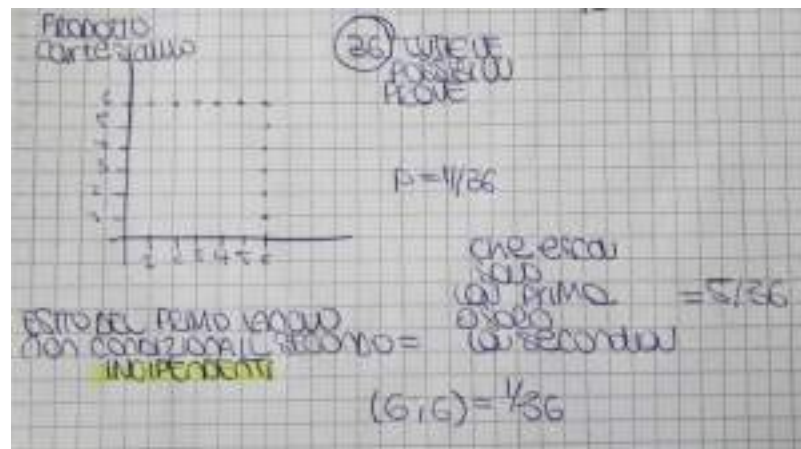 PRODOTTO
cartesiano
36 TUTTE LE
POSSIBILI
PROVE
6
5
4
3
2
1
1 2 3 4 5 6
P=11/36
che esca
solo
la prima =5/36
o solo
la seconda
ESITO DEL PRIMO LANCIO
NON CONDIZIONA IL SECONDO =
INDIPENDENTI
(6;6)=1/36